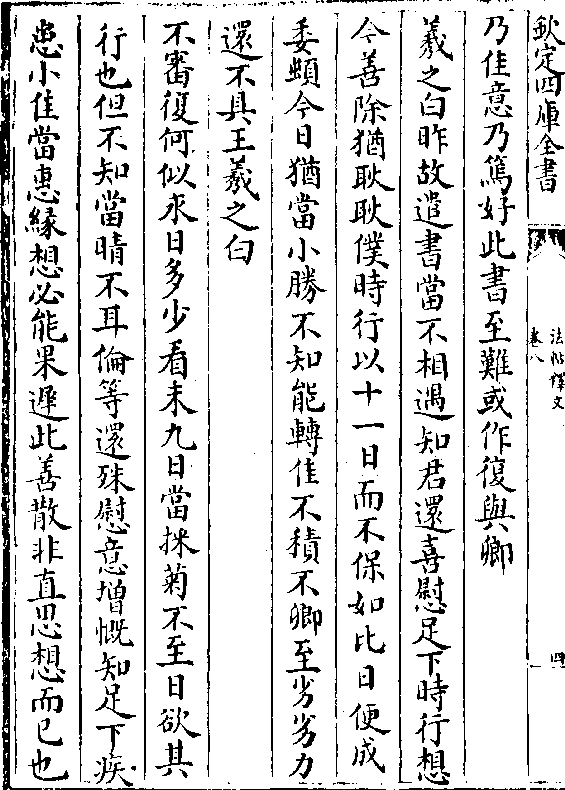 欽定四庫全書
法帖釋文
卷八
四
乃佳意乃篤好此書至難或作復與卿
羲之白昨故遣書當不相遇知君還喜慰足下時行想
今善除猶耿耿僕時行以十一日而不保如比日便成
委頓今日猶當小勝不知能轉佳不積不卿至劣劣力
還不具王羲之白
不審復何似永日多少看未九日當採菊不至日欲其
行也但不知當晴不耳倫等還殊慰意增慨知足下疾
患小佳當惠緣想必能果遲此善散非直思想而已也